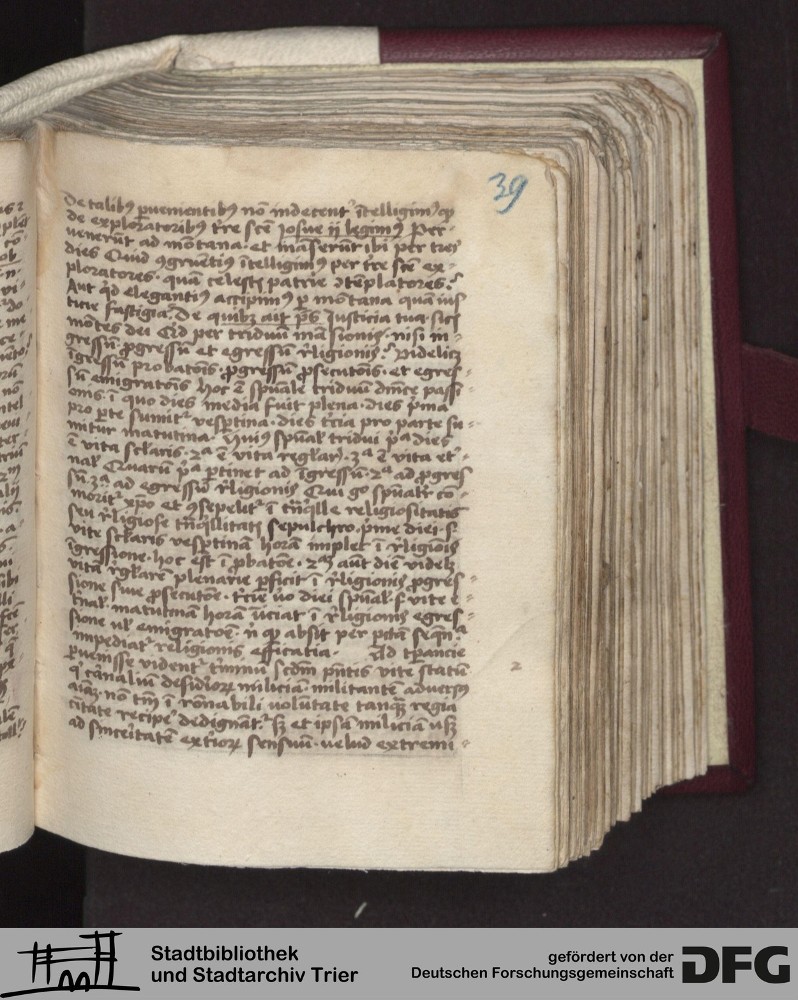 39
De talibꝰ ꝑuenientibꝰ nō indecent' ītelligimꝰ qꝫ
de exploratoribꝰ tr̄e sc̄e josue ij legimꝰ Per-
venerūt ad mōtana · et māserūt ibi per tres
dies Quid ꝯgruētiꝰ ītelligimꝰ per tr̄e sc̄e ex-
ploratores · quā celestꝭ patrie ꝯtēplatores ·
Aut qd elegantiꝰ accipimꝰ ꝑ mōtana quā ius
ticie fastigia · De quibꝫ ait p̄s Justicia tua sic̄
mōtes dei Qid per triduū māsionis · nisi in-
gressū ꝓgressū et egressū r̄ligionis · videlicꝫ
īgressū probatōis · ꝓgressū ꝓsecutōis · et egres-
sū emigratōis hoc ē spūale triduū dn̄ice passi-
onis · ī quo dies media fuit plena · dies p̄ma
pro ꝑte sumit' vesꝑtina · dies t̄cia pro parte su-
mitur matutina · Huiꝰ spūal' tridui pᵃ dies
ē vita sc̄laris · 2ᵃ ē vita reglar' · 3ᵃ ē vita et'-
nal' Quarū pᵃ ꝑtinet ad īgressū · 2ᵃ ad ꝓgres
sū 3ᵃ ad egressū r̄ligionis Qui go spūalr' co-
morit' xp̄o et ꝯsepelit' ī tn̄q̄lle religiositatis
seu r̄ligiose tn̄q̄llitatis sepulchro · p̄me diei · s·
vite sc̄laris vesꝑtinā horā implet ī r̄ligiois
īgressione · hoc est ī ꝓbatōe · 2ᵐ aūt diē videlꝫ
vitā r̄glarē plenarie ꝑficit ī r̄ligionis ꝓgres-
sione siue ꝓsecutōe · t̄cie ūo diei spūal' · s· vite e-
t̄nal' matutinā horā īciat ī r̄ligionis egres-
sione ul' emigratōe · n̄ qꝫ absit per pc̄tā seqn̄ᵃ
impediat' religionis efficatia · Ad tꝑancie
ꝑuenisse vident' t̄minū scdm p̄ntis vite statū
q' carnaliū desid'iorꝝ miliciā · militantē adversꝰ
aīaꝫ · nō tm̄ ī rōnabili volūtate tanqꝫ regia
cītate reciꝑe dedignāt' sꝫ et ipsā miliciā usꝫ
ad sinc'itatē ext'iorꝝ sensuū · velud extremi
2
Stadtbibliothek
und Stadtarchiv Trier
gefördert von der
Deutschen Forschungsgemeinschaft
DFG